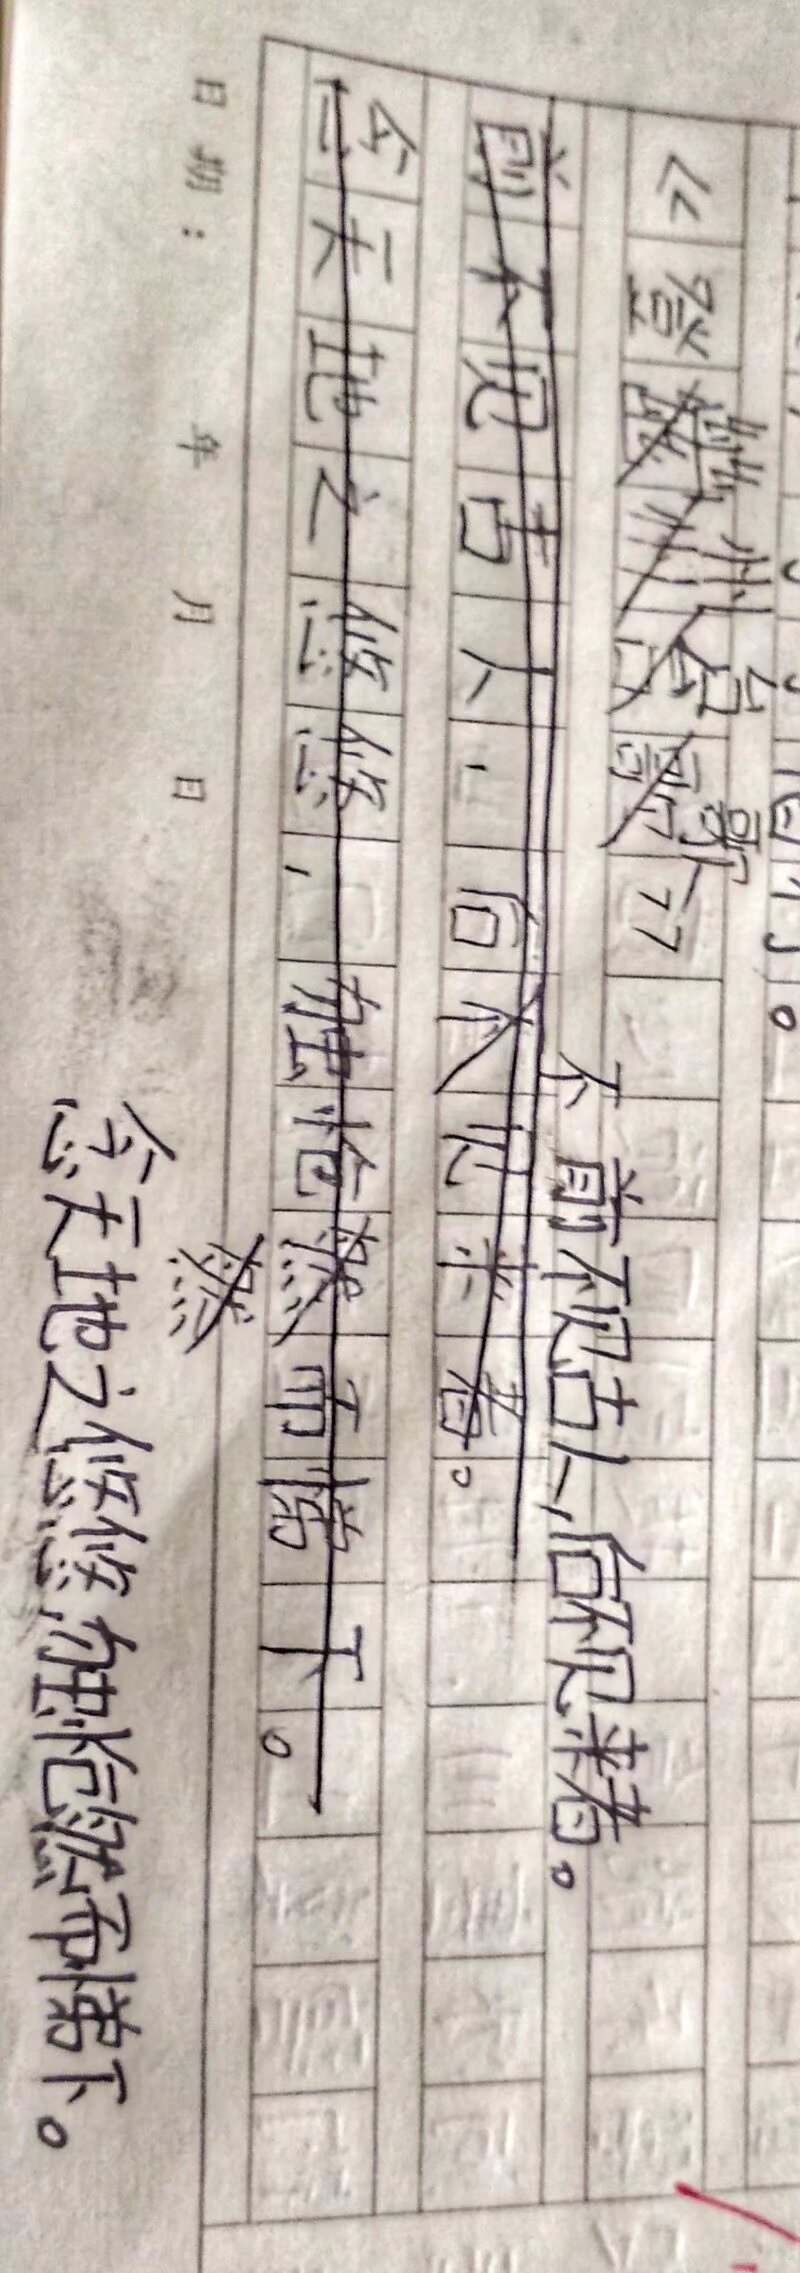 幽州台歌
《登幽州台歌》
不前不见古人,后不见来者。
前不见古人,后不见来者。
念天地之悠悠,独怆然而涕下。
然
日期: 年 月 日
念天地之悠悠,独怆然而涕下。